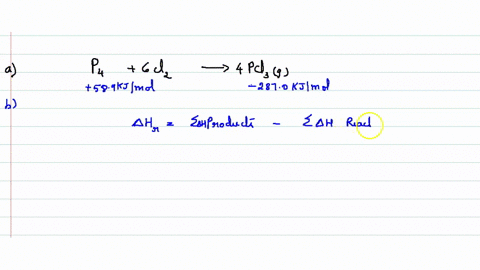 a) P4 + 6Cl2 ⟶ 4 PCl3(g)
+58.9 KJ/mol -287.0 KJ/mol
b)
ΔHr = ΣΔHProducts - ΣΔH Read